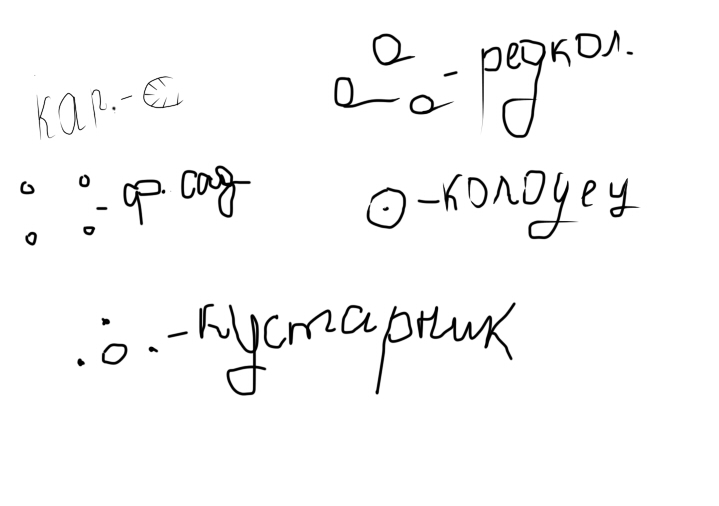 - редкол.
кар. -
- ф. сад
- колодец
- кустарник